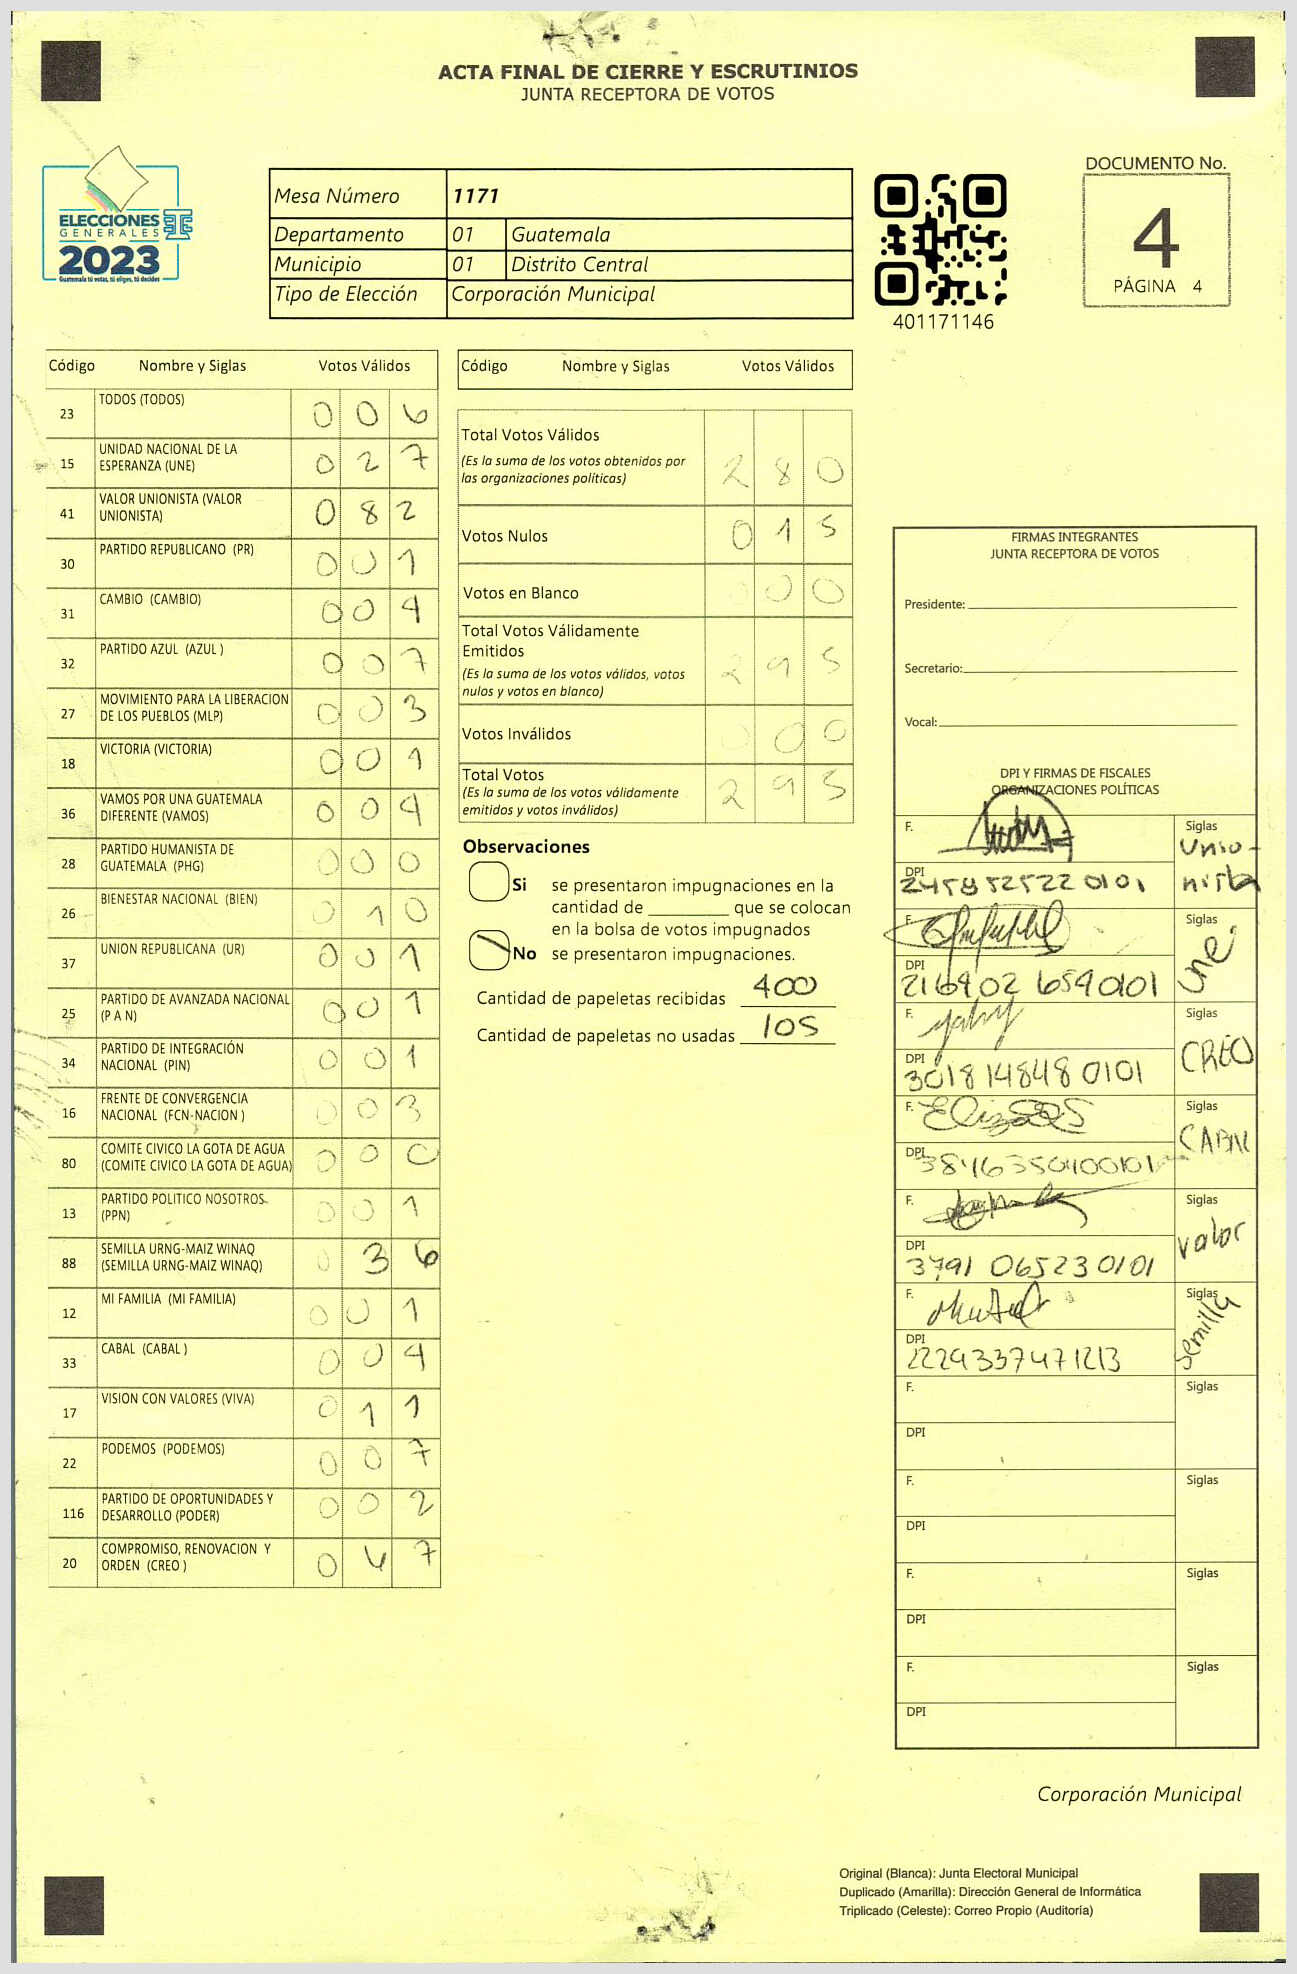 ACTA FINAL DE CIERRE Y ESCRUTINIOS
JUNTA RECEPTORA DE VOTOS
ELECCIONES
GENERALES
2023
Guatemala tú votas, tú eliges, tú decides
Mesa Número 1171
Departamento 01 Guatemala
Municipio 01 Distrito Central
Tipo de Elección Corporación Municipal
401171146
DOCUMENTO No.
4
PÁGINA 4
Código Nombre y Siglas Votos Válidos
23 TODOS (TODOS) 0 0 6
15 UNIDAD NACIONAL DE LA ESPERANZA (UNE) 0 2 7
41 VALOR UNIONISTA (VALOR UNIONISTA) 0 8 2
30 PARTIDO REPUBLICANO (PR) 0 0 1
31 CAMBIO (CAMBIO) 0 0 4
32 PARTIDO AZUL (AZUL ) 0 0 7
27 MOVIMIENTO PARA LA LIBERACION DE LOS PUEBLOS (MLP) 0 0 3
18 VICTORIA (VICTORIA) 0 0 1
36 VAMOS POR UNA GUATEMALA DIFERENTE (VAMOS) 0 0 4
28 PARTIDO HUMANISTA DE GUATEMALA (PHG) 0 0 0
26 BIENESTAR NACIONAL (BIEN) 0 1 0
37 UNION REPUBLICANA (UR) 0 0 1
25 PARTIDO DE AVANZADA NACIONAL (P A N) 0 0 1
34 PARTIDO DE INTEGRACIÓN NACIONAL (PIN) 0 0 1
16 FRENTE DE CONVERGENCIA NACIONAL (FCN-NACION ) 0 0 3
80 COMITE CIVICO LA GOTA DE AGUA (COMITE CIVICO LA GOTA DE AGUA) 0 0 0
13 PARTIDO POLITICO NOSOTROS (PPN) 0 0 1
88 SEMILLA URNG-MAIZ WINAQ (SEMILLA URNG-MAIZ WINAQ) 0 3 6
12 MI FAMILIA (MI FAMILIA) 0 0 1
33 CABAL (CABAL ) 0 0 4
17 VISION CON VALORES (VIVA) 0 1 1
22 PODEMOS (PODEMOS) 0 0 7
116 PARTIDO DE OPORTUNIDADES Y DESARROLLO (PODER) 0 0 2
20 COMPROMISO, RENOVACION Y ORDEN (CREO ) 0 4 7
Código Nombre y Siglas Votos Válidos
Total Votos Válidos 2 8 0
(Es la suma de los votos obtenidos por
las organizaciones políticas)
Votos Nulos 0 1 5
Votos en Blanco 0 0 0
Total Votos Válidamente
Emitidos 2 9 5
(Es la suma de los votos válidos, votos
nulos y votos en blanco)
Votos Inválidos 0 0 0
Total Votos 2 9 5
(Es la suma de los votos válidamente
emitidos y votos inválidos)
Observaciones
Si se presentaron impugnaciones en la
cantidad de ________ que se colocan
en la bolsa de votos impugnados
No se presentaron impugnaciones.
Cantidad de papeletas recibidas 400
Cantidad de papeletas no usadas 105
FIRMAS INTEGRANTES
JUNTA RECEPTORA DE VOTOS
Presidente:
Secretario:
Vocal:
DPI Y FIRMAS DE FISCALES
ORGANIZACIONES POLÍTICAS
F. Siglas Unio-
DPI 245852522 0101 nista
F. Siglas une
DPI 216902 6590101
F. Siglas CREO
DPI 301814848 0101
F. Siglas CABAL
DPI 3846350400101
F. Siglas valor
DPI 3791 065230101
F. Siglas semilla
DPI 2229337471213
F. Siglas
DPI
F. Siglas
DPI
F. Siglas
DPI
F. Siglas
DPI
Corporación Municipal
Original (Blanca): Junta Electoral Municipal
Duplicado (Amarilla): Dirección General de Informática
Triplicado (Celeste): Correo Propio (Auditoría)